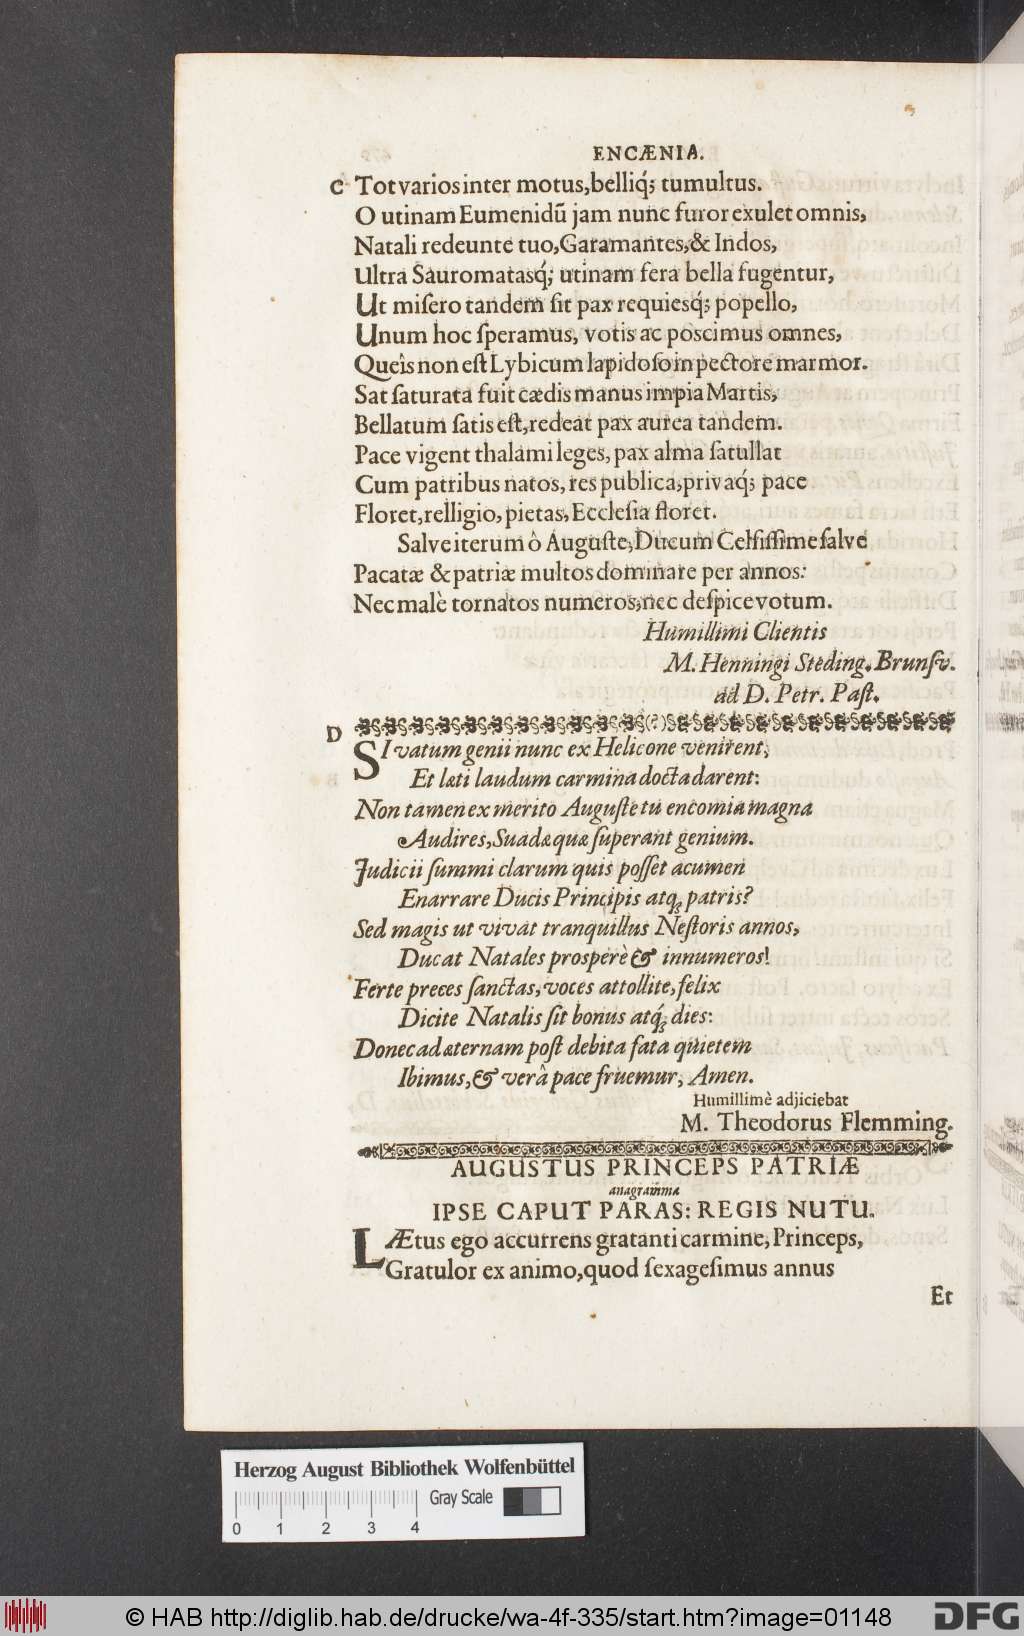 ENCÆNIA.
C Tot varios inter motus, belliq́; tumultus.
O utinam Eumenidũ jam nunc furor exulet omnis,
Natali redeunte tuo, Garamantes, & Indos,
Ultra Sauromatasq́; utinam fera bella fugentur,
Ut miſero tandem ſit pax requiesq́; popello,
Unum hoc ſperamus, votis ac poscimus omnes,
Queîs non eſt Lybicum lapidoſo in pectore marmor.
Sat ſaturata fuit cædis manus impia Martis,
Bellatum ſatis eſt, redeat pax aurea tandem.
Pace vigent thalami leges, pax alma ſatullat
Cum patribus natos, res publica, privaq́; pace
Floret, relligio, pietas, Eccleſia floret.
Salve iterum ô Auguſte, Ducum Celſiſſime ſalve
Pacatæ & patriæ multos dominare per annos:
Nec malè tornatos numeros, nec deſpice votum.
Humillimi Clientis
M. Henningi Steding. Brunſv.
ad D. Petr. Paſt.
(?)
D
SI vatum genii nunc ex Helicone venirent,
Et læti laudum carmina docta darent:
Non tamen ex merito Auguſte tu encomia magna
Audires, Suadæ quæ ſuperant genium.
Judicii ſummi clarum quis poſſet acumen
Enarrare Ducis Principis atq; patris?
Sed magis ut vivat tranquillus Neſtoris annos,
Ducat Natales prosperè & innumeros!
Ferte preces ſanctas, voces attollite, felix
Dicite Natalis ſit bonus atq́; dies:
Donec ad æternam poſt debita fata quietem
Ibimus, & verâ pace fruemur, Amen.
Humillimè adjiciebat
M. Theodorus Flemming.
AUGUSTUS PRINCEPS PATRIÆ
anagramma
IPSE CAPUT PARAS: REGIS NUTU.
LÆtus ego accurrens gratanti carmine, Princeps,
Gratulor ex animo, quod ſexageſimus annus
Et
Herzog August Bibliothek Wolfenbüttel
Gray Scale
0 1 2 3 4
© HAB http://diglib.hab.de/drucke/wa-4f-335/start.htm?image=01148
DFG